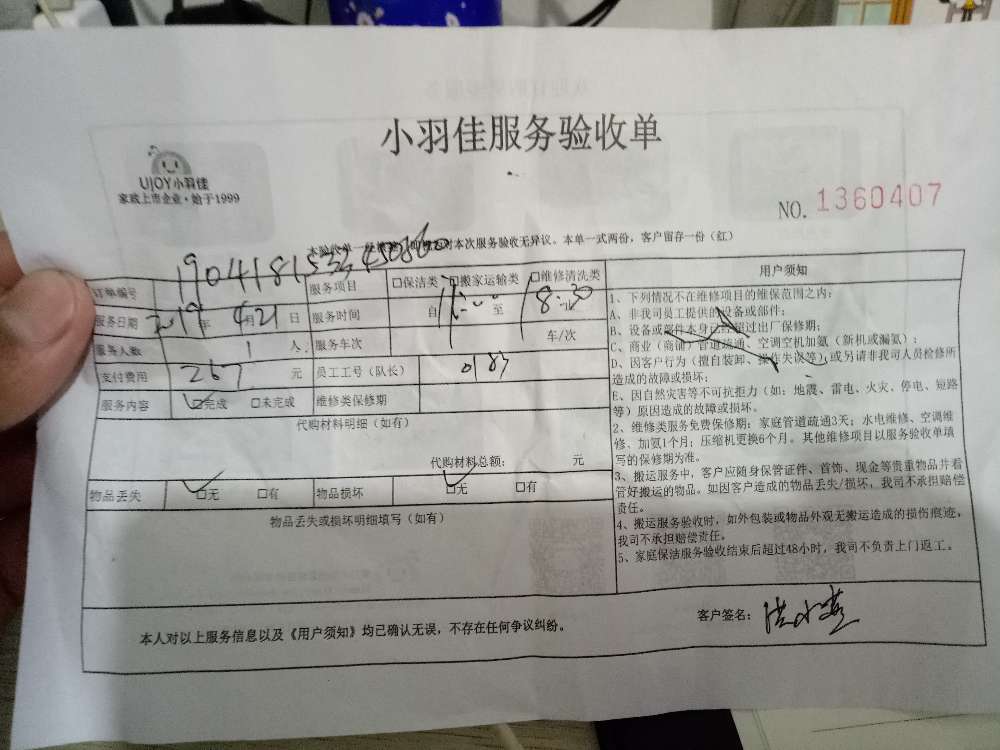 小羽佳服务验收单
UJOY小羽佳
家政上市企业·始于1999
NO. 1360407
对本次服务验收无异议。本单一式两份，客户留存一份（红）
订单编号
服务项目 □保洁类 □搬家运输类 □维修清洗类
服务日期 2019 年 4月21 日 服务时间 自 至 18:30
服务人数 1 人 服务车次 车/次
支付费用 267 元 员工工号（队长） 0183
服务内容 ☑完成 □未完成 维修类保修期
代购材料明细（如有）
代购材料总额： 元
物品丢失 ☑无 □有 物品损坏 ☑无 □有
物品丢失或损坏明细填写（如有）
用户须知
1、下列情况不在维修项目的维保范围之内：
A、非我司员工提供的设备或部件；
B、设备或部件本身已超过出厂保修期；
C、商业（商铺）管道疏通、空调空机加氨（新机或漏氨）；
D、因客户行为（擅自装卸、操作失误等）或另请非我司人员检修所
造成的故障或损坏；
E、因自然灾害等不可抗拒力（如：地震、雷电、火灾、停电、短路
等）原因造成的故障或损坏。
2、维修类服务免费保修期：家庭管道疏通3天；水电维修、空调维
修、加氨1个月；压缩机更换6个月。其他维修项目以服务验收单填
写的保修期为准。
3、搬运服务中，客户应随身保管证件、首饰、现金等贵重物品并看
管好搬运的物品。如因客户造成的物品丢失/损坏，我司不承担赔偿
责任。
4、搬运服务验收时，如外包装或物品外观无搬运造成的损伤痕迹，
我司不承担赔偿责任。
5、家庭保洁服务验收结束后超过48小时，我司不负责上门返工。
本人对以上服务信息以及《用户须知》均已确认无误，不存在任何争议纠纷。
客户签名：